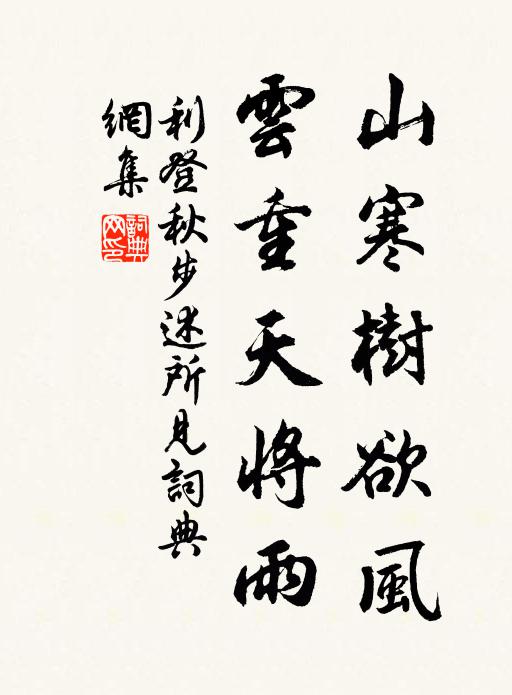 山寒樹欲風
雲重天將雨
利登秋步述所見詞典
網集
詞典网印